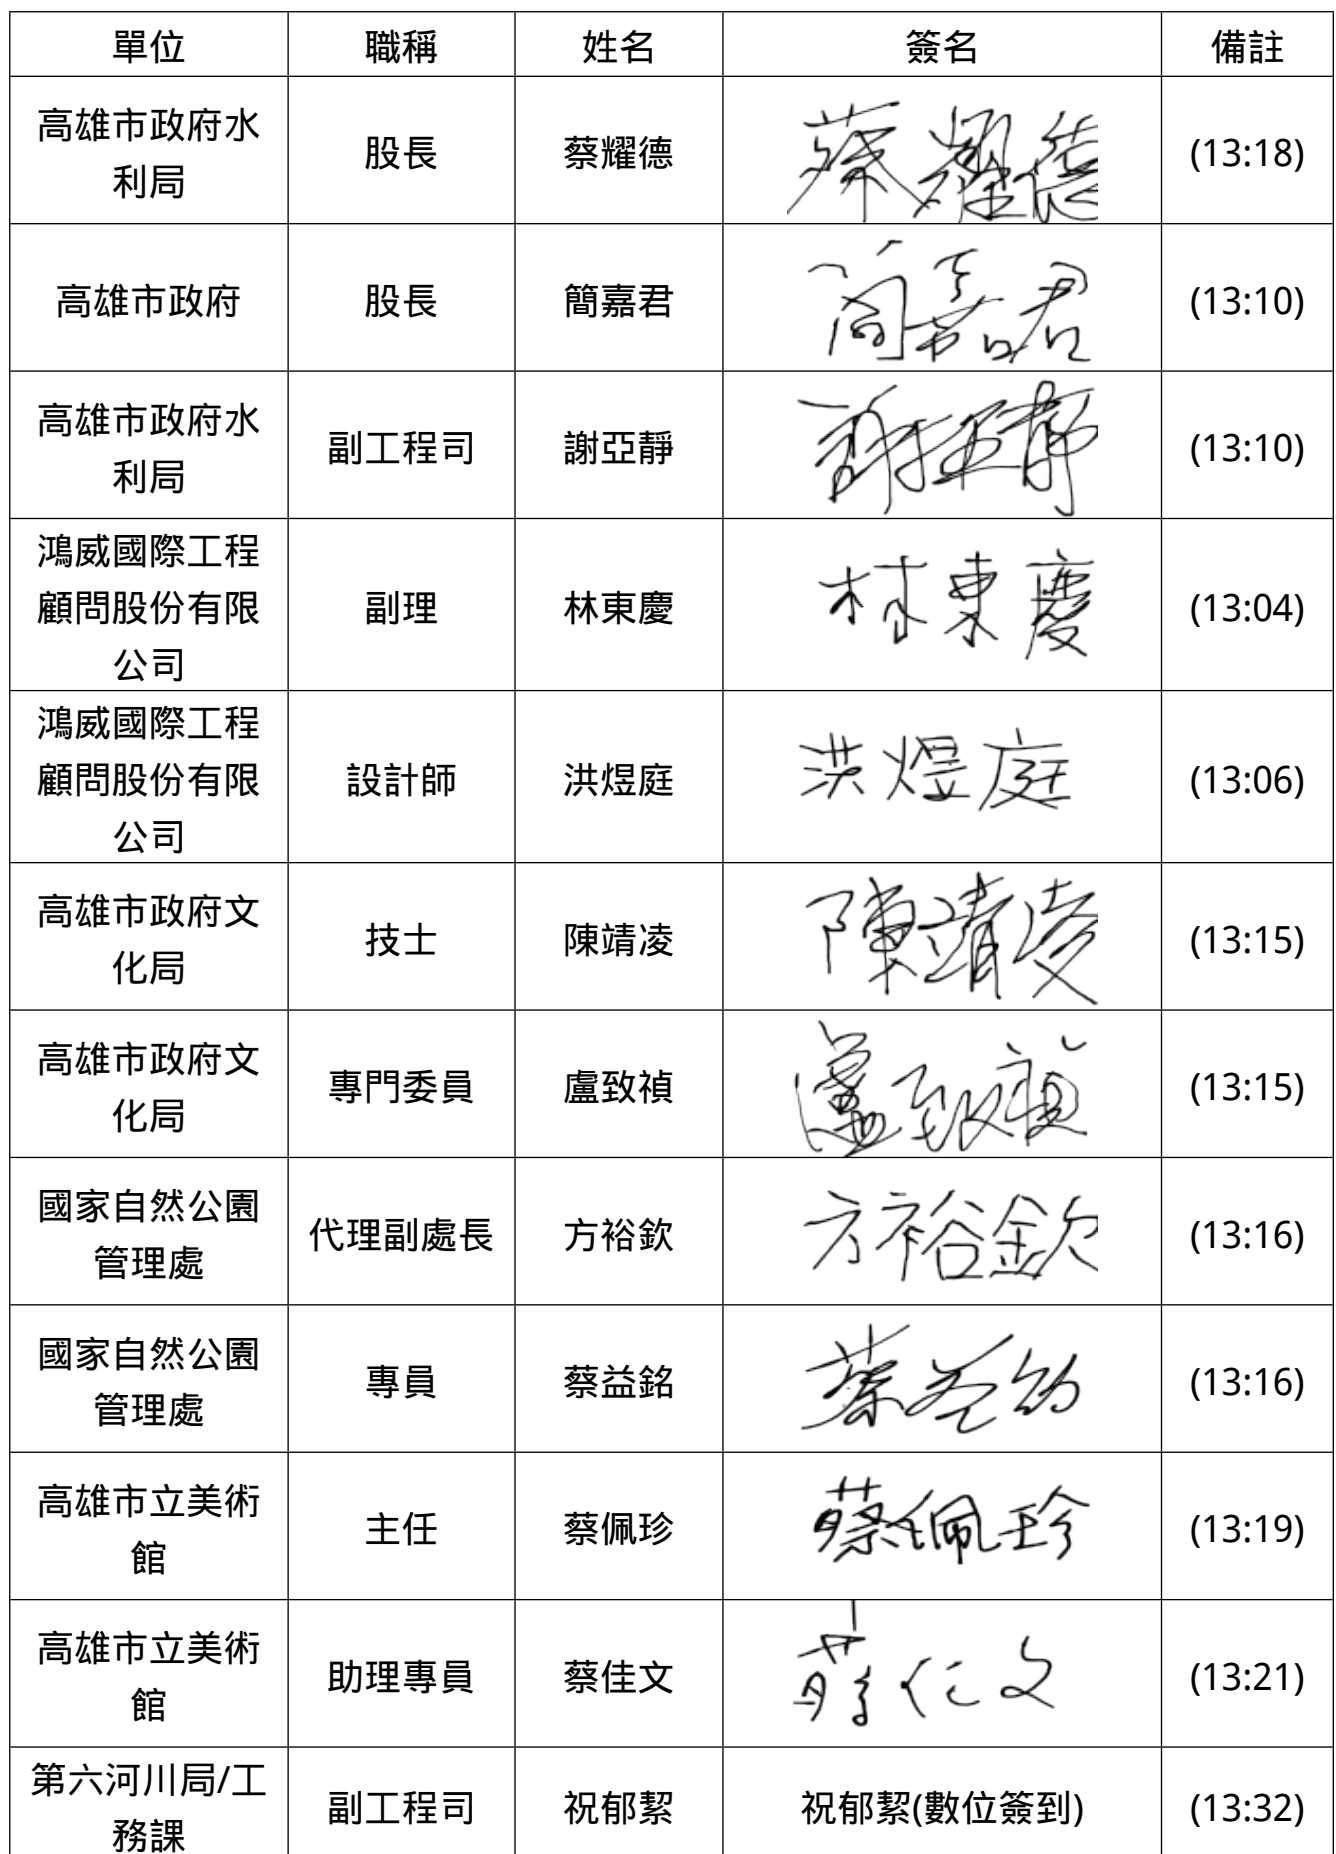 單位 職稱 姓名 簽名 備註
高雄市政府水
利局 股長 蔡耀德 蔡耀德 (13:18)
高雄市政府 股長 簡嘉君 簡嘉君 (13:10)
高雄市政府水
利局 副工程司 謝亞靜 謝亞靜 (13:10)
鴻威國際工程
顧問股份有限
公司 副理 林東慶 林東慶 (13:04)
鴻威國際工程
顧問股份有限
公司 設計師 洪煜庭 洪煜庭 (13:06)
高雄市政府文
化局 技士 陳靖凌 陳靖凌 (13:15)
高雄市政府文
化局 專門委員 盧致禎 盧致禎 (13:15)
國家自然公園
管理處 代理副處長 方裕欽 方裕欽 (13:16)
國家自然公園
管理處 專員 蔡益銘 蔡益銘 (13:16)
高雄市立美術
館 主任 蔡佩珍 蔡佩珍 (13:19)
高雄市立美術
館 助理專員 蔡佳文 蔡佳文 (13:21)
第六河川局/工
務課 副工程司 祝郁絜 祝郁絜(數位簽到) (13:32)